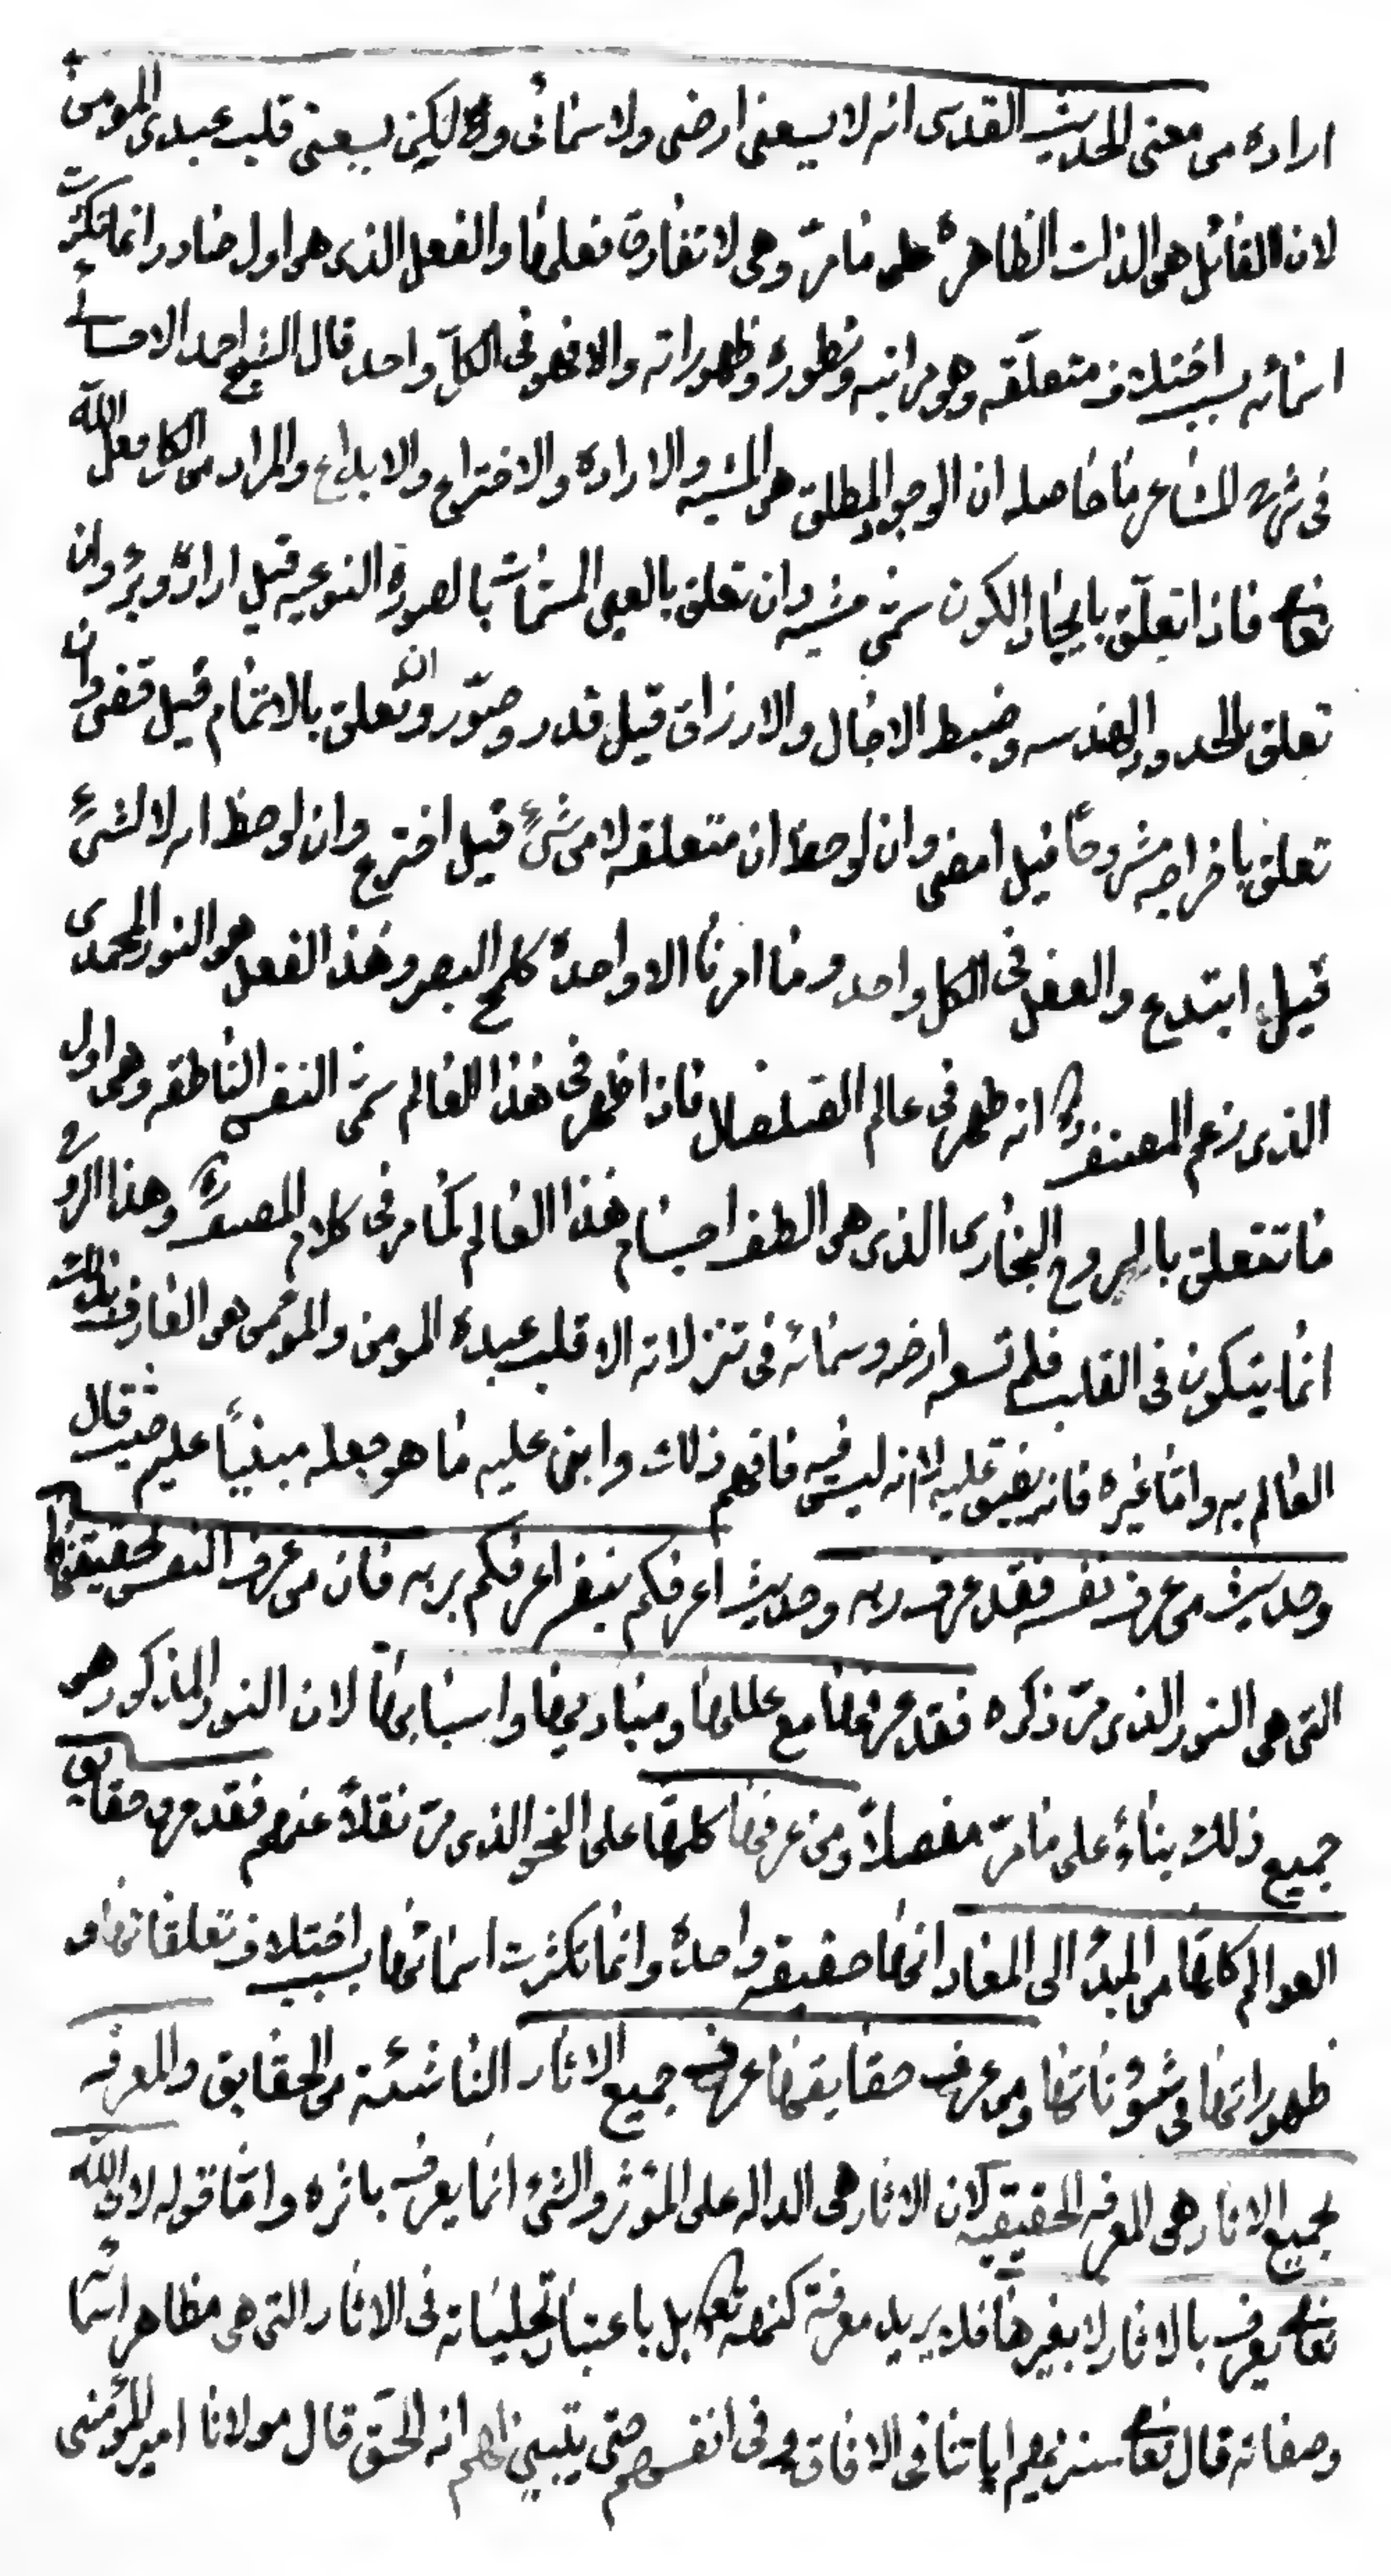 اراده من معنى الحديث القدسى انه لا يسعنى ارضى ولا سمائى ولكن يسعنى قلب عبدى المومن
لان الفائل هو الذات الظاهرة على ما مر وهى لا تفارق فعلها والفعل الذى هو اول صادر وانما تكثرت
اسمائه بسبب اختلاف متعلقه وهو مراتبه وتطوره وظهوراته والا فهو فى الكل واحد قال الشيخ احمد الاحسائى
فى شرح المشاعر ما حاصله ان الوجود المطلق هو المشيه والاراده والاختراع والابداع والمراد من الكل فعل الله
تعالى فاذا تعلق بايجاد الكون سمى مشيه وان تعلق بالعين المسمات بالصورة النوعيه قيل اراد وبرء وان
تعلق بالحدود الهندسه وضبط الاجال والارزاق قيل قدر وصور وان تعلق بالاتمام قيل قضى وان
تعلق باخراجه مشروحا قيل امضى وان لوحظ ان متعلقه لا من شئ قيل اخترع وان لوحظ انه لا لشئ
قيل ابتدع والفعل فى الكل واحد وما امرنا الا واحدة كلمح البصر وهذا الفعل هو النور المحمدى
الذى زعم المصنف انه ظهر فى عالم فاذا ظهر فى هذا العالم سمى النفس الناطقه وهى اول
ما تتعلق بالروح البخارى الذى هو الطف اجسام هذا العالم كما مر فى كلام المصنف وهذا الروح
انما يتكون فى القلب فلم تسعه ارضه وسمائه فى تنزلاته الا قلب عبده المومن والمومن هو العارف بذلك
العالم به واما غيره فانه يضيق عليه لانه ليس فيه فافهم ذلك وابن عليه ما هو جعله مبنيا عليه حيث قال
وحديث من عرف نفسه فقد عرف ربه وحديث اعرفكم بنفسه اعرفكم بربه فان من عرف النفس بحقيقتها
التى هى النور الذى مر ذكره فقد عرفها مع عللها ومباديها واسبابها لان النور المذكور هو
جميع ذلك بناء على ما مر مفصلا ومن عرفها كلها على النحو الذى مر نقلا عنهم فقد عرف حقايق
العوالم كلها من المبدء الى المعاد انها حقيقه واحدة وانما تكثرت اسمائها بسبب اختلاف تعلقاتها و
ظهوراتها فى شؤناتها ومن عرف حقايقها عرف جميع الاثار الناشئة من الحقايق والمعرفه
بجميع الاثار هى المعرفه الحقيقيه لان الاثار هى الداله على المؤثر والشئ انما يعرف باثره واما قوله لان الله
تعالى يعرف بالاثار لا بغيرها فلا يريد معرفة كنهه تعالى بل باعتبار تجلياته فى الاثار التى هى مظاهر اسمائه
وصفاته قال تعالى سنريهم اياتنا فى الافاق وفى انفسهم حتى يتبين لهم انه الحق قال مولانا امير المؤمنين